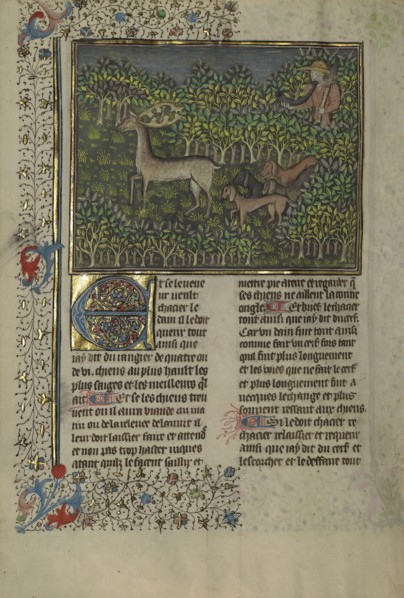 Et se le veneur
ur veult
chacier le
dain il le doit
querir tout
ainsi que
iay dit du rangier de quatre ou
de vi. chiens au plus hault les
plus saiges et les meilleurs ql
ait Et se les chiens treu
vent ou il aura viande au ma
tin ou de la relevee de la nuit il
leur doit laissier faire et atend
et non pas trop haster iusques
atant quilz le facent saillir et
mettre pie a terre et regarder q
ses chiens ne aillent la contre
ongle Et doit le chacier
tout ainsi que iay dit du cerf
Car un dain fuit tout ainsi
comme fait un cerf fors tant
quil fuit plus longuement
et les voies que ne fait le cerf
et plus longuement fuit a
necques le change et plus
souvent ressant aux chiens
Si le doit chacier re
chacier relaissier et requerir
ainsi que iay dit du cerf et
lescorcher et le deffaire tout